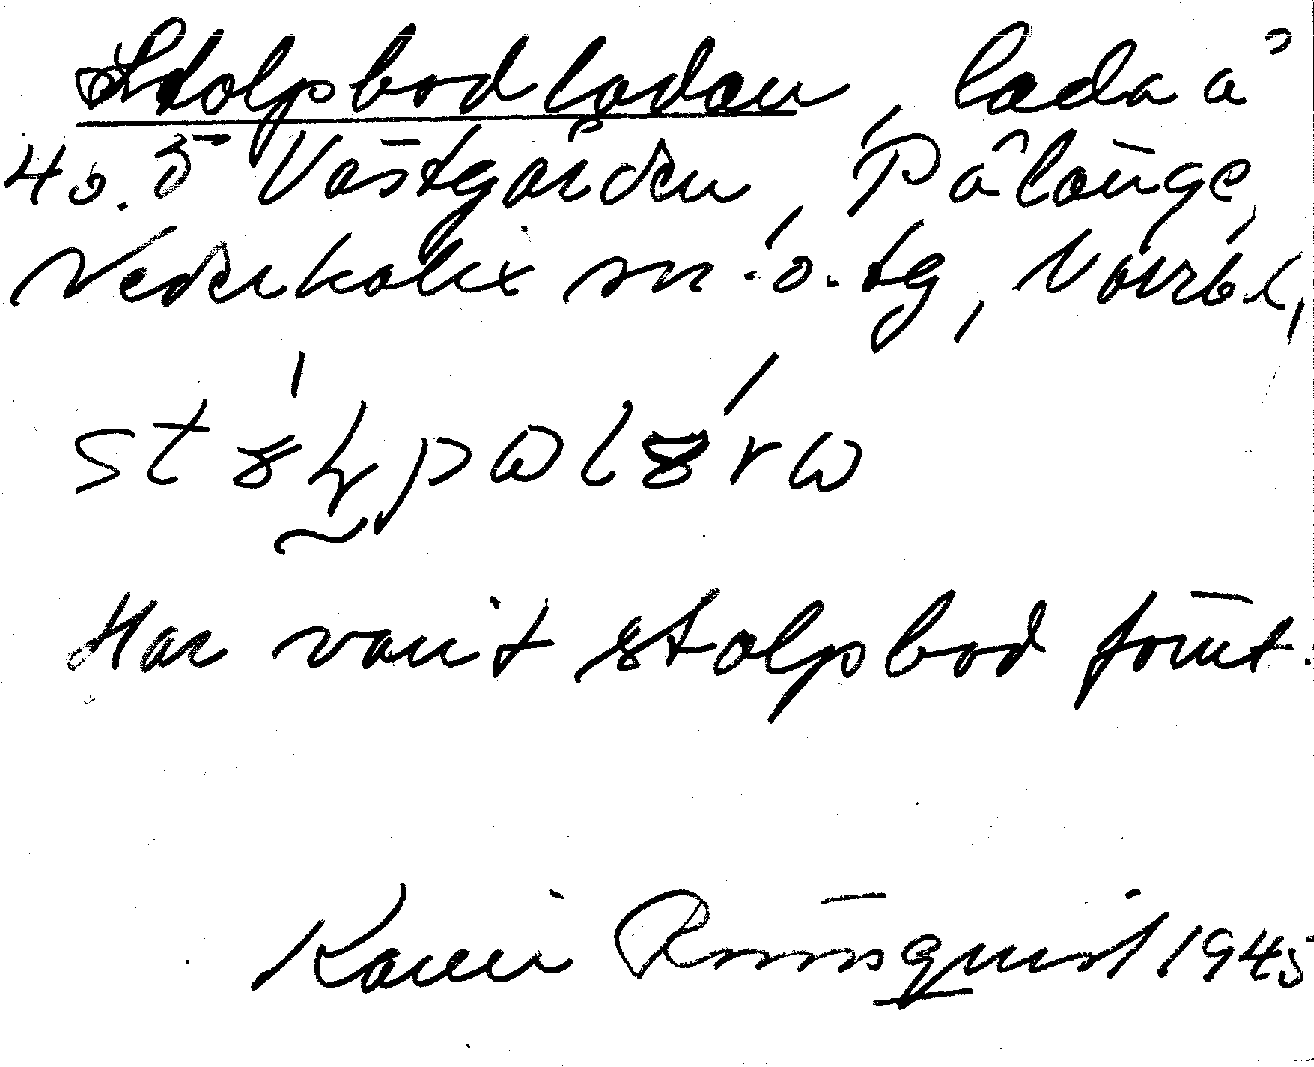 Stolpbodladan, lada å
4 o. 5 Västgården, Pålänge,
Nederkalix sn o. tg, Norrb.l,
Har varit stolpbod förut.
Karin 1945